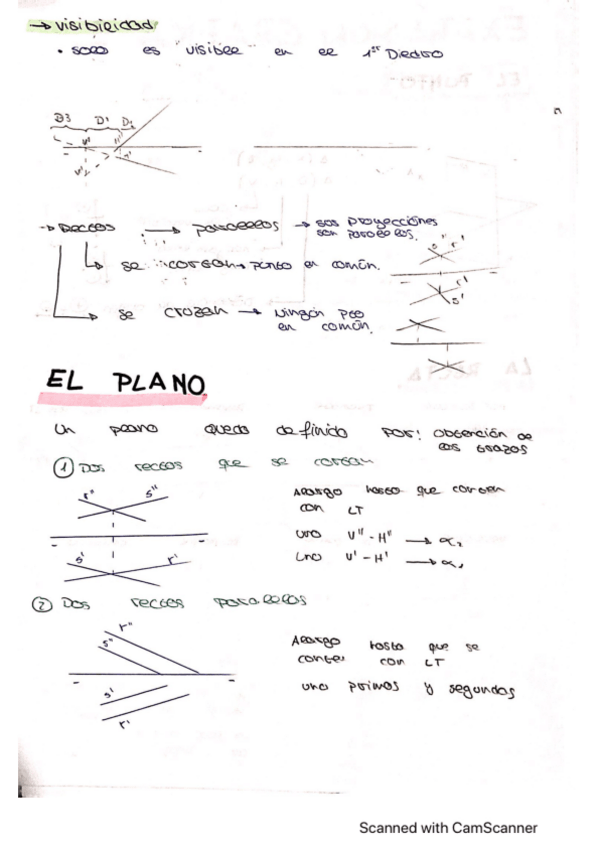 → visibilidad
• solo es "visible" en el 1er Diedro
D3 D1 D2
v'' H''
v' H'
→ Rectas → paralelas → sus proyecciones
son paralelas.
↳ se cortan → punto en común.
s'' r''
r'
s'
→ se cruzan → Ningún pto
en común.
EL PLANO
Un plano queda definido por: Obtención de
los trazos
① Dos rectas que se cortan
r'' s''
s' r'
Alargo hasta que corten
con LT
uno V''-H'' → α₂
uno V'-H' → α₁
② Dos rectas paralelas
r''
s''
s'
r'
Alargo hasta que se
corten con LT
uno primas y segundas
Scanned with CamScanner